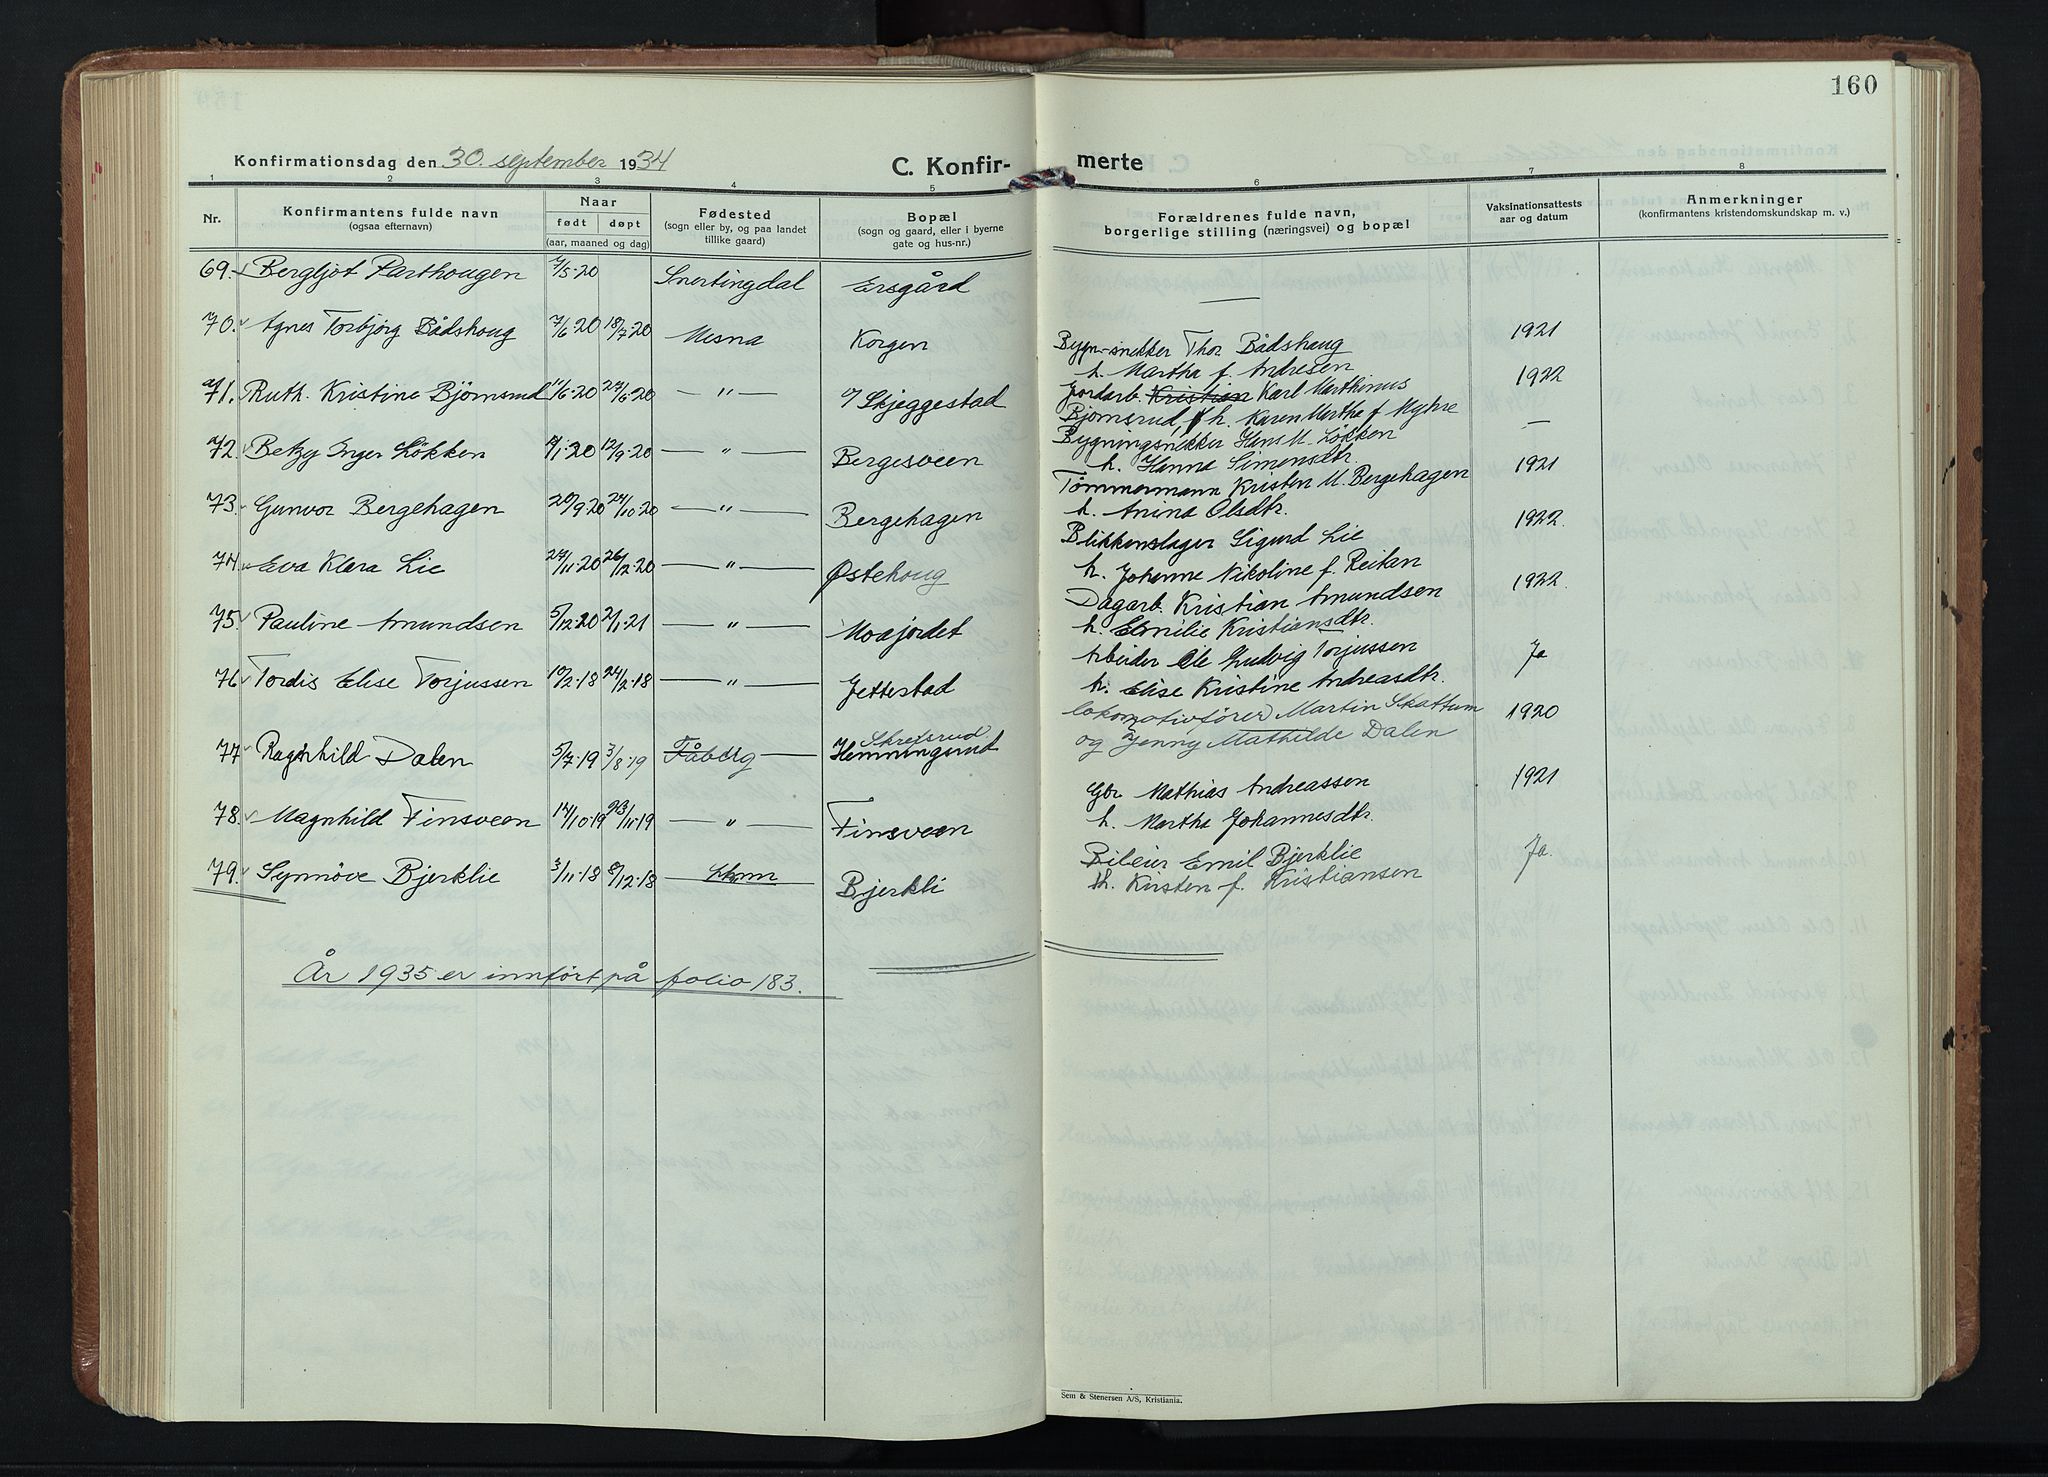 160
Konfirmationsdag den 30. september 1934
C. Konfir- merte
1 2 3 4 5 6 7 8
Nr.
Konfirmantens fulde navn
(ogsaa efternavn)
Naar
født døpt
(aar, maaned og dag)
Fødested
(sogn eller by, og paa landet
tillike gaard)
Bopæl
(sogn og gaard, eller i byerne
gate og hus-nr.)
Forældrenes fulde navn,
borgerlige stilling (næringsvei) og bopæl
Vaksinationsattests
aar og datum
Anmerkninger
(konfirmantens kristendomskundskap m. v.)
69. Bergljot Parthougen 7/5-20 Snertingdal Ersgård —
70. Agnes Torbjørg Bådshoug 7/6 20 18/7-20 Mesna Korgen
Bygn-snekker Thor Bådshaug 1921
h. Martha f. Andresen
71. Ruth Kristine Bjørnsrud 11/6-20 27/6-20 — " — Skjeggestad
Jordarb. Kristian Karl Marthinus 1922
Bjørnsrud, h. Karen Martha f. Myhre
72. Betzy Inger Løkken /1-20 12/9-20 — " — Bergesveen
Bygningsnekker Hans M. Løkken —
h. Hanna Simensdtr.
73. Gunvor Bergehagen 20/9 20 24/10-20 — " — Bergehagen
Tømmermann Kristen M. Bergehagen 1921
h. Anina Olsdtr.
74. Eva Klara Lie 24/11-20 26/12-20 — " — Østehoug
Blikkenslager Sigurd Lie 1922.
h. Johanne Nikoline f. Reitan
75. Pauline Amundsen 5/12-20 2/1-21 — " — Moajordet
Dagarb. Kristian Amundsen 1922.
h. Emilie Kristiansdtr.
76. Tordis Elise Torjussen 10/2-18 24/2-18 — " — Jetterstad
Arbeider Ole Ludvig Torjussen Ja
h. Elise Kristine Andreasdtr.
77. Ragnhild Dalen 5/7-19 3/8-19 Fåberg — Skreisrud
Henningsrud
lokomotivfører Martin Skattum 1920
og Jenny Mathilde Dalen
78. Magnhild Finsveen 14/10-19 23/11-19 — " — Finsveen
Gbr. Mathias Andreassen 1921
h. Martha Johannesdtr.
79. Synnøve Bjerklie 3/11-18 8/12-18 Bjerkli
Bileier Emil Bjerklie Ja.
h. Kirsten f. Kristiansen
År 1935 er innført på folio 183.
Sem & Stenersen A/S, Kristiania.